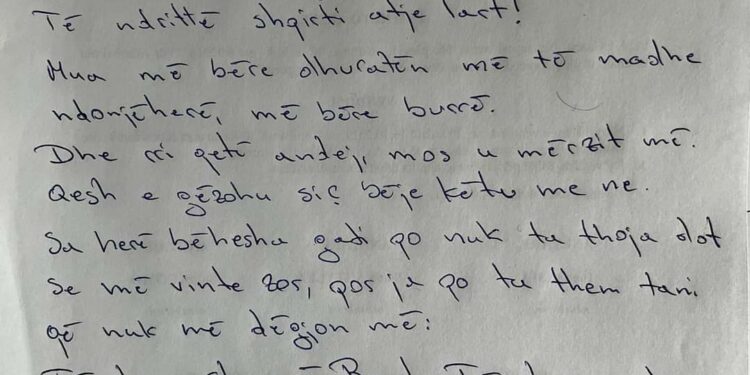 Të ndrittë shpirti atje lart!
Mua më bëre dhuratën më të madhe
ndonjëherë, më bëre burrë.
Dhe rri qetë andej, mos u mërzit më.
Qesh e gëzohu siç bëje këtu me ne.
Sa herë bëhesha gati po nuk ta thoja dot
se më vinte zor, por ja po ta them tani
që nuk më dëgjon më: